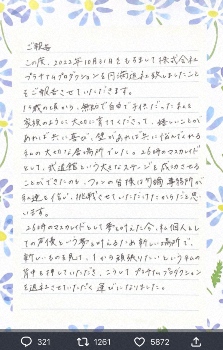 ご報告
この度、2022年10月31日をもちまして株式会社
プライムプロダクションを円満退社致しましたこと
をご報告させていただきます。
家族のように大切に育ててくださって、嬉しいことが
あれば共に喜び、壁があれば共に悩んでくれる
私の大切な居場所でした。26時のマスカレイド
として、武道館という大きなステージを成功させる
ことができたのも、ファンの皆様は勿論、事務所が
私達を信じ、挑戦させていただいたからだと思
います。
26時のマスカレイドとして夢を叶えた今、私個人とし
ての声優という夢を叶えるため新しい場所で、
新しいものを見て、1から頑張りたいという私の
背中を押していただき、こうしてプライムプロダクション
を退社させていただく運びになりました。
321
1261
5872